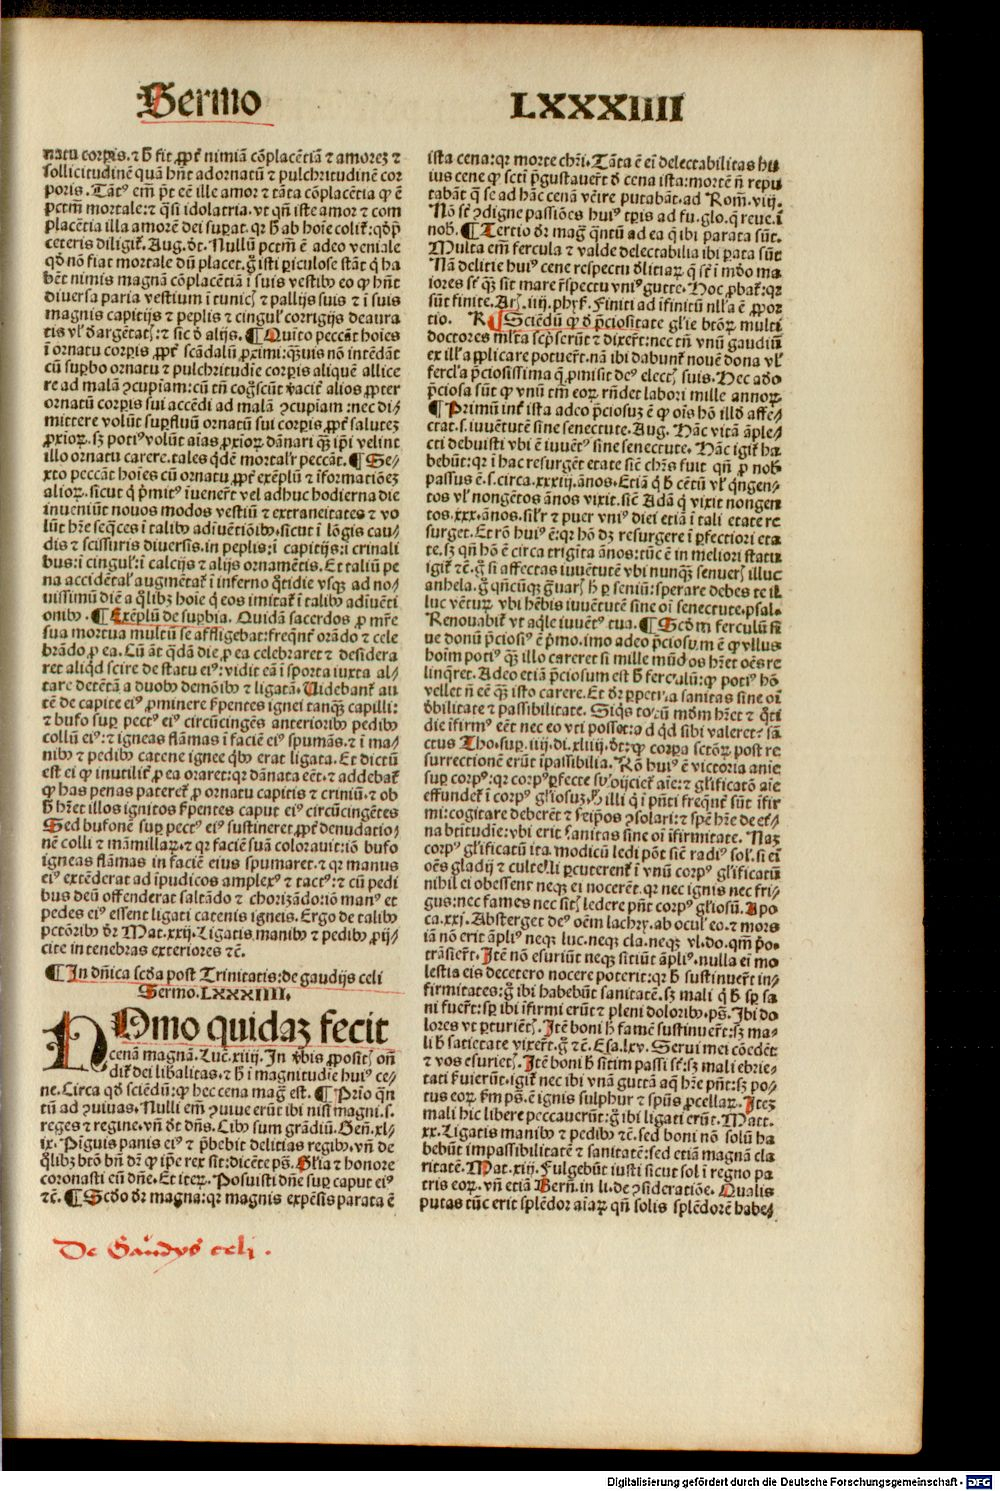 Sermo LXXXIIII
natu corꝑis. ⁊ hͦ fit ꝓpt̄ nimiā cōplacētiā ⁊ amorez ⁊
sollicitudinē quā hn̄t ad ornatū ⁊ pulchritudinē cor
poris. Tātꝰ em̄ pt̄ eē ille amor ⁊ tāta cōplacētia ꝙ ē
pctm̄ mortale: ⁊ q̄si idolatria. vt qn̄ iste amor ⁊ com
placētia illa amorē dei suꝑat. qꝛ hͦ ab hoīe colit̄: qd̓ p̄
ceteris diligit̄. Aug. dt̄. Nullū pctm̄ ē adeo veniale
qd̓ nō fiat mortale dū placet. g̊ isti ꝑiculose stāt q̇ ha
bēt nimis magnā cōplacētiā ī suis vestibꝰ eo ꝙ hn̄t
diuersa paria vestium ī tunicꝭ ⁊ pallijs suis ⁊ ī suis
magnis capitijs ⁊ peplis ⁊ cingul̓ corrigijs deaura
tis vl̓ d̓argētatꝭ: ⁊ sic d̓ alijs. ¶ Quīto peccāt hoīes
ī ornatu corꝑis ꝓpt̄ scādalū ꝓximi: q̄uis nō intēdāt
cū suꝑbo ornatu ⁊ pulchritudīe corꝑis aliquē allice
re ad malā ꝯcupiam: cū tn̄ cog̊scūt v̓acit̄ alios ꝓpter
ornatū corꝑis sui accēdi ad malā ꝯcupiam: nec di/
mittere volūt suꝑfluū ornatū sui corꝑis ꝓpt̄ salutez
ꝓxioꝝ. sꝫ potiꝰ volūt aīas ꝓxioꝝ dānari q̄ꝫ ip̄i velint
illo ornatu carere. tales q̇dē mortal̓r peccāt. ¶ Se/
xto peccāt hoīes cū ornatu ꝓpt̄ exēplū ⁊ īformatiōez
alioꝝ. sicut q̇ p̄mitꝰ īuener̄t vel adhuc hodierna die
inueniūt nouos modos vestiū ⁊ extraneitates ⁊ vo
lūt hr̄e seq̄ces ī talibꝰ adīuētiōibꝰ. sicut ī lōgis cau/
dis ⁊ scissuris diuersis. in peplis: ī capitijs: ī crinali
bus: ī cingul̓: ī calcijs ⁊ alijs ornamētis. Et taliū pe
na accidētal̓ augmētat̄ ī inferno q̇tidie vsqꝫ ad no/
uissimū diē a q̇libꝫ hoīe q̇ eos imitat̄ ī talibꝰ adīuēti
onibꝰ. ¶ Exēplū de suꝑbia. Quidā sacerdos ꝓ mr̄e
sua mortua multū se affligebat: freq̄nt̄ orādo ⁊ cele
brādo ꝓ ea. Cū āt q̇dā die ꝓ ea celebraret ⁊ desidera
ret aliq̇d scire de statu eiꝰ: vidit eā ī sporta iuxta al/
tare detētā a duobꝰ demōibꝰ ⁊ ligatā. Uidebant̄ au
tē de capite eiꝰ ꝓminere s̓pentes ignei tanqꝫ capilli:
⁊ bufo suꝑ pectꝰ eiꝰ circūcingēs anterioribꝰ pedibꝰ
collū eiꝰ: ⁊ igneas flāmas ī faciē eiꝰ spumās. ⁊ ī ma/
nibꝰ ⁊ pedibꝰ catene ignee q̇bꝰ erat ligata. Et dictū
est ei ꝙ inutilit̄ ꝓ ea oraret: qꝛ dānata eēt. ⁊ addebat̄
ꝙ has penas pateret̄ ꝓ ornatu capitis ⁊ criniū. ⁊ ob
hͦ hr̄et illos ignitos s̓pentes caput eiꝰ circūcingētes
Sed bufonē suꝑ pectꝰ eiꝰ sustineret ꝓpt̄ denudatio/
nē colli ⁊ māmillaꝝ. ⁊ qꝛ faciē suā colorauit: iō bufo
igneas flāmas in faciē eius spumaret. ⁊ qꝛ manus
eiꝰ extēderat ad īpudicos amplexꝰ ⁊ tactꝰ: ⁊ cū pedi
bus deū offenderat saltādo ⁊ chorizādo: iō manꝰ et
pedes eiꝰ essent ligati catenis igneis. Ergo de talibꝰ
pctōribꝰ dr̄ Mat. xxij. Ligatis manibꝰ ⁊ pedibꝰ ꝓij/
cite in tenebras exteriores ⁊ tē.
¶ In dn̄ica scd̓a post Trinitatis: de gaudijs celi
Sermo. LXXXIIII.
HOmo quidaꝫ fecit
cenā magnā. Luc̄. xiiij. In v̓bis ꝓpositꝭ on̄
dit̄ dei lib̓alitas. ⁊ hͦ ī magnitudīe huiꝰ ce/
ne. Circa qd̓ sciēdū: ꝙ hec cena mag̊ est. ¶ Prīo q̄n
tū ad ꝯuiuas. Nulli em̄ ꝯuiue erūt ibi nisi magni. s.
reges ⁊ regine. vn̄ dt̄ dn̄s. Cibꝰ sum grādiū. Gen̄. xl/
ix. Pīguis panis eiꝰ ⁊ p̄bebit delitias regibꝰ. vn̄ de
q̇libꝫ btō bn̄ dr̄ ꝙ ip̄e rex sit: dicēte ps̄. Gl̓ia ⁊ honore
coronasti eū dn̄e. Et iteꝝ. Posuisti dn̄e suꝑ caput eiꝰ
⁊ tē. ¶ Scd̓o dr̄ magna: qꝛ magnis expēsis parata ē
De Gaudys celi.
ista cena: qꝛ morte chr̄i. Tāta ē eī delectabilitas hu
ius cene ꝙ sctī p̄gustauer̄t d̓ cena ista: mortē n̄ repu
tabāt q̇ se ad hāc cenā vēire putabāt. ad Rom̄. viij.
Nō st̄ ꝯdigne passiōes huiꝰ tꝑis ad fu. glo. q̄ reue. ī
nob̄. ¶ Tertio dr̄ mag̊ q̄ntū ad ea q̄ ibi parata sūt.
Multa em̄ fercula ⁊ valde delectabilia ibi ꝑata sūt
Nā delitie huiꝰ cene respectu d̓litiaꝝ q̄ st̄ ī mōdo ma
iores st̄ q̄ꝫ sit mare r̄spectu vniꝰ gutte. Hoc ꝓbat̄: qꝛ
sūt finite. Arꝭ. iiij. phyꝭ. Finiti ad īfinitū nll̓a ē ꝓpor
tio. R ¶ Sciēdū ꝙ d̓ p̄ciositate gl̓ie btōꝝ multi
doctores ml̓ta scp̄serūt ⁊ dixer̄t: nec tn̄ vnū gaudiū
ex ill̓ applicare potuer̄t. nā ibi dabunt̄ nouē dona vl̓
fercl̓a p̄ciosissima q̄ ꝓmisit deꝰ electꝭ suis. Hec adeo
p̄ciosa sūt ꝙ vnū tm̄ eoꝝ rn̄det labori mille annoꝝ
¶ Primū int̄ ista adeo p̄ciosuꝫ ē ꝙ oīs hō illd̓ affe/
ctat. s. iuuētutē sine senectute. Aug. Hāc vitā āple/
cti debuisti vbi ē iuuētꝰ sine senectute. Hāc igit̄ ha
bebūt: qꝛ ī hac resurgēt etate sic̄ chr̄s fuit qn̄ ꝓ nob̄
passus ē. s. circa. xxxiij. ānos. Etiā q̇ hͦ cētū vl̓ q̇ngen/
tos vl̓ nongētos ānos vixit. sic̄ Adā q̇ vixit nongen
tos. xxx. ānos. sil̓r ⁊ puer vniꝰ diei etiā ī tali etate re
surget. Et rō huiꝰ ē: qꝛ hō dꝫ resurgere ī ꝑfectiori eta
te. sꝫ qn̄ hō ē circa trigīta ānos: tūc ē in meliori statu
igit̄ ⁊ tē. g̊ si affectas iuuētutē vbi nunqꝫ senuerꝭ illuc
anhela. g̊ qn̄cūqꝫ g̊uarꝭ hͦ ꝑ seniū: sperare debes te il
luc vētuꝝ vbi hēbis iuuētutē sine oī senectute. psal.
Renouabit̄ vt aq̇le iuuētꝰ tua. ¶ Scd̓m ferculū si
ue donū p̄ciosiꝰ ē p̄mo. imo adeo p̄ciosum ē ꝙ vllus
hoīm potiꝰ q̄ꝫ illo careret si mille mūdos hr̄et oēs re
linq̄ret. Adeo etiā p̄ciosum est hͦ ferculū: ꝙ potiꝰ hō
vellet n̄ eē q̄ꝫ isto carere. Et dr̄ ꝑpetua sanitas sine oī
d̓bilitate ⁊ passibilitate. Siq̇s totū mūdm̄ hr̄et ⁊ q̇ti
die īfirmꝰ eēt nec eo vti posset: ad q̇d sibi valeret? sā
ctus Tho. suꝑ. iiij. di. xliiij. dt̄: ꝙ corꝑa sctōꝝ post re
surrectionē erūt īpassibilia. Rō huiꝰ ē victoria anīe
suꝑ corpꝰ: qꝛ corpꝰ ꝑfecte subijciet̄ aīe: ⁊ gl̓ificatō aīe
effundet̄ ī corpꝰ gl̓iosuꝫ. hͦ illi q̇ ī pn̄ti freq̄nt̄ sūt īfir
mi: cogitare deberēt ⁊ seip̄os ꝯsolari: ⁊ spē hr̄e de et̄/
na btitudīe: vbi erit sanitas sine oī īfirmitate. Naꝫ
corpꝰ gl̓ificatū ita modicū ledi pōt sic̄ radiꝰ sol̓. si eī
oēs gladij ⁊ cultelli ꝑcuterent̄ ī vnū corpꝰ gl̓ificatū
nihil ei obessent neqꝫ ei nocerēt. qꝛ nec ignis nec fri/
gus: nec fames nec sitꝭ ledere pn̄t corpꝰ gl̓iosū. Apo
ca. xxj. Absterget deꝰ oēm lachry. ab ocul̓ eo. ⁊ mors
iā nō erit āpliꝰ neqꝫ luc. neqꝫ cla. neqꝫ vl. do. qm̄ p̄o.
trāsier̄t. Itē nō esuriūt neqꝫ sitiūt āpliꝰ. nulla eī mo
lestia eis decetero nocere poterit: qꝛ hͦ sustinuer̄t in/
firmitates: g̊ ibi habebūt sanitatē. sꝫ mali q̇ hͦ sꝑ sa
ni fuer̄t: sꝑ ibi īfirmi erūt ⁊ pleni doloribꝰ. ps̄. Ibi do
lores vt ꝑturiētꝭ. Itē boni hͦ famē sustinuer̄t: sꝫ ma/
li hͦ satietate vixer̄t. g̊ ⁊ tē. Esa. lxv. Serui mei cōedēt
⁊ vos esurietꝭ. Itē boni hͦ sitim passi st̄: sꝫ mali ebrie/
tati s̓uierūt. igit̄ nec ibi vnā guttā aq̄ hr̄e pn̄t: sꝫ po/
tus eoꝝ s̓m ps̄. ē ignis sulphur ⁊ sp̄us ꝓcellaꝝ. Iteꝫ
mali hic libere peccauerūt: g̊ ibi ligati erūt. Matt.
xx. Ligatis manibꝰ ⁊ pedibꝰ ⁊ tē. sed boni nō solū ha
bebūt impassibilitatē ⁊ sanitatē: sed etiā magnā cla
ritatē. Mat. xiij. Fulgebūt iusti sicut sol ī regno pa
tris eoꝝ. vn̄ etiā Bern̄. in li. de ꝯsideratiōe. Qualis
putas tūc erit splēdor aīaꝝ qn̄ solis splēdorē habe/
Digitalisierung gefördert durch die Deutsche Forschungsgemeinschaft - DFG